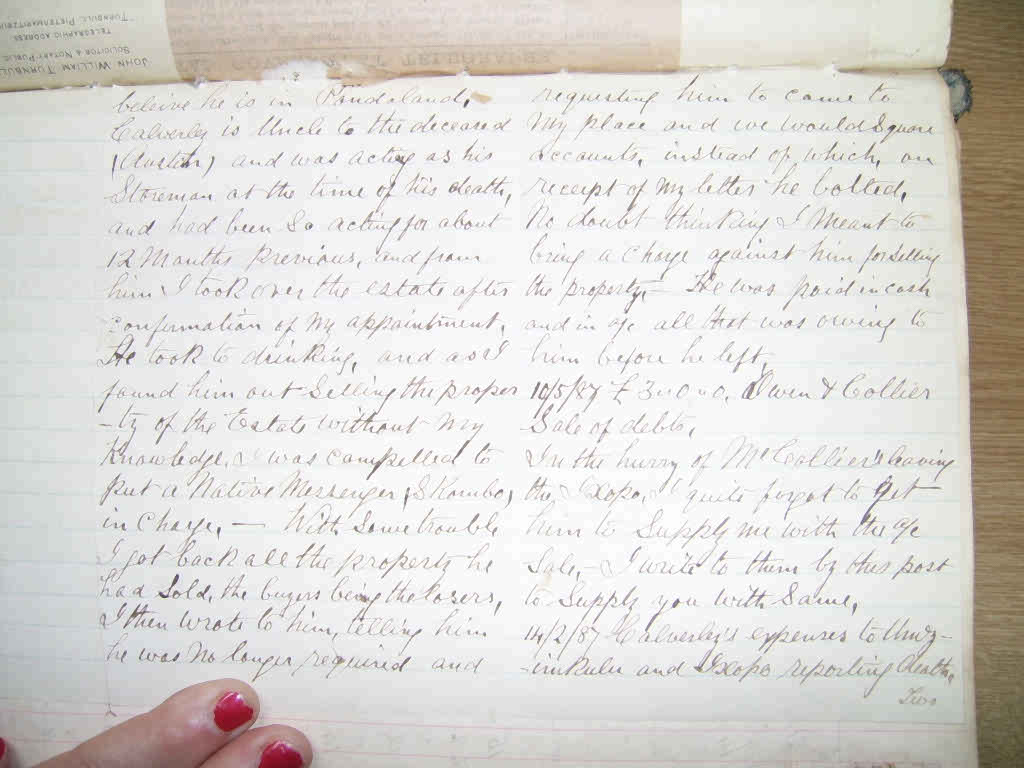 JOHN WILLIAM TURNBULL
SOLICITOR & NOTARY PUBLIC
TELEGRAPHIC ADDRESS
"TURNBULL, PIETERMARITZBURG
beleive he is in Pondoland.
Calverley is Uncle to the deceased
(Austin) and was acting as his
Storeman at the time of his death,
and had been so acting for about
12 Months previous, and from
him I took over the estate after
confirmation of my appointment,
He took to drinking, and as I
found him out selling the proper
-ty of the Estate without my
Knowledge, I was compelled to
put a Native Messenger, Skombo,
in Charge, — With Some trouble
I got back all the property he
had Sold, the buyers being the losers,
I then wrote to him, telling him
he was no longer required and
requesting him to come to
my place and we would Square
accounts, instead of which, on
receipt of my letter he bolted,
No doubt thinking I meant to
bring a charge against him for selling
the property, — He was paid in cash
and in a/c all that was owing to
him before he left,
10/5/87 £ 3 " 0 " 0. Owen & Collier
Sale of debts,
In the hurry of Mr Collier's leaving
the Ixopo, I quite forgot to get
him to Supply me with the a/c
Sale, — I write to them by this post
to Supply you with Same,
14/2/87 Calverley's expenses to Umz-
-imkulu and Ixopo reporting death,
Two